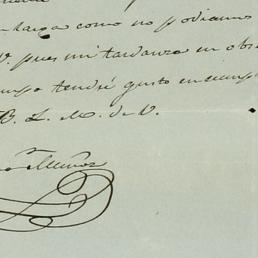 como no podiamos
V. pues mi tardanza en obs
tendré gusto en cump
B. L. M. de V.
Muñoz